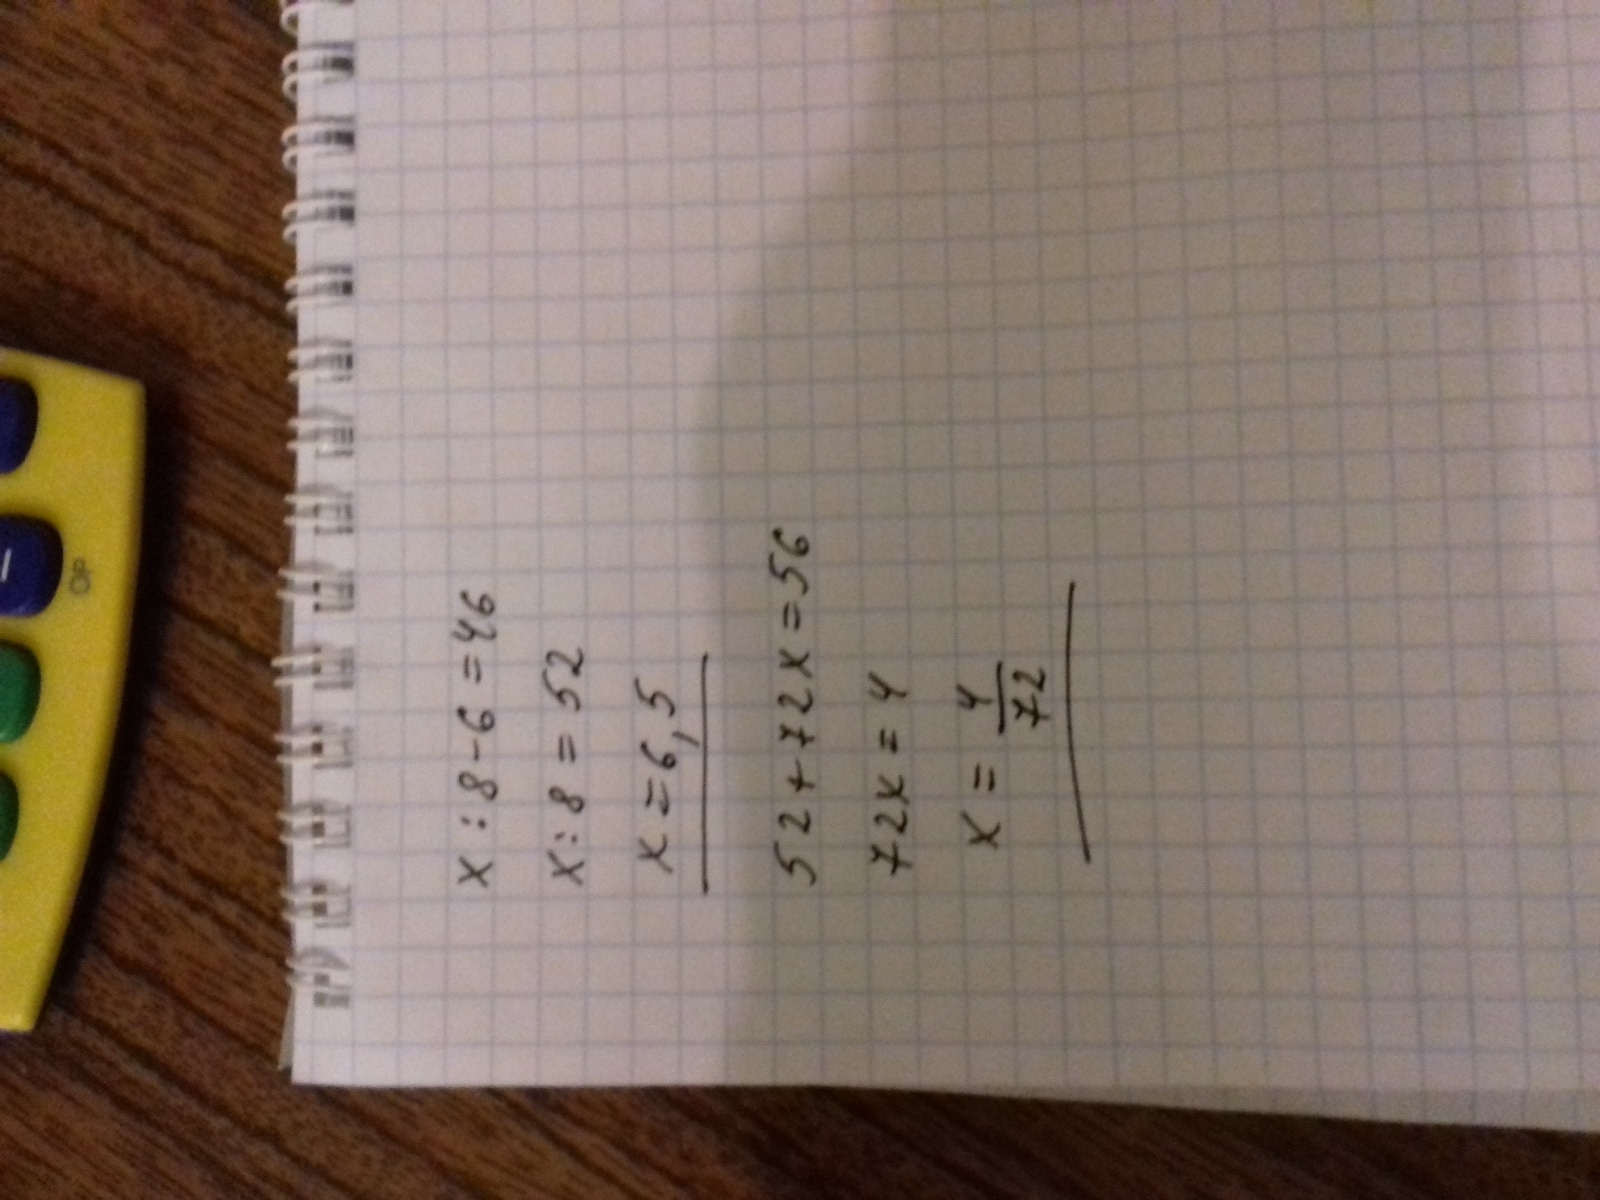 x : 8 - 6 = 46
x : 8 = 52
x = 6,5
52 + 72x = 56
72x = 4
x = 4/72